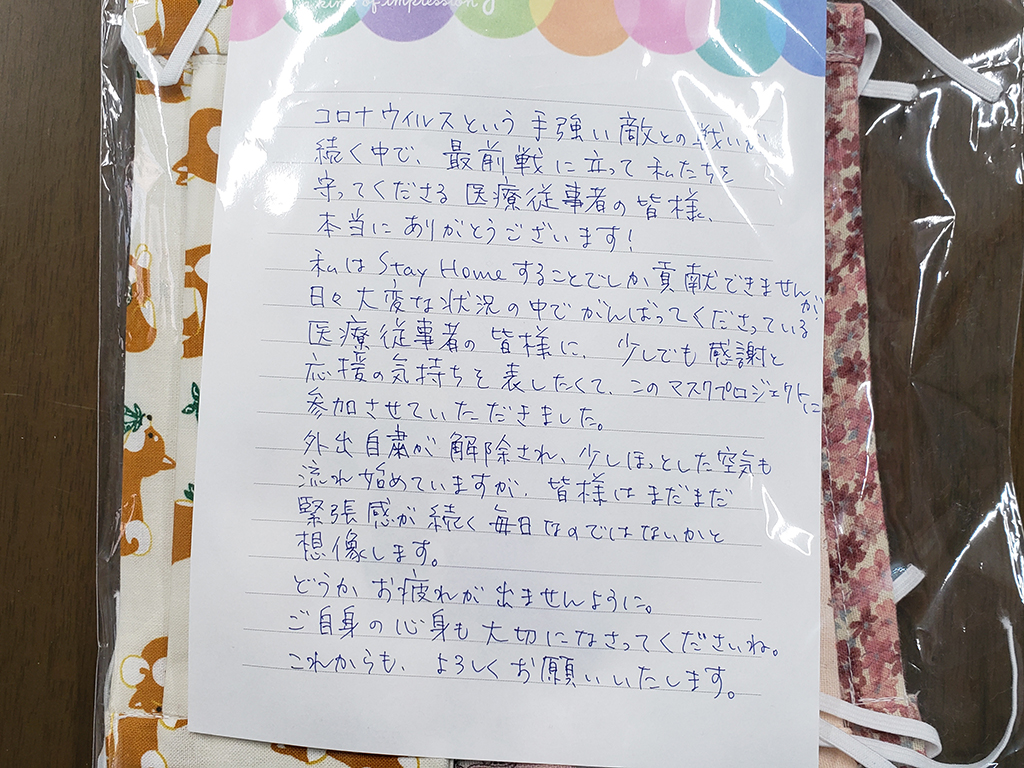 a kind of impression
コロナウイルスという手強い敵との戦いが
続く中で、最前戦に立って私たちを
守ってくださる医療従事者の皆様、
本当にありがとうございます!
私は Stay Home することでしか貢献できませんが
日々大変な状況の中でがんばってくださっている
医療従事者の皆様に、少しでも感謝と
応援の気持ちを表したくて、このマスクプロジェクトに
参加させていただきました。
外出自粛が解除され、少しほっとした空気も
流れ始めていますが、皆様はまだまだ
緊張感が続く毎日なのではないかと
想像します。
どうかお疲れが出ませんように。
ご自身の心身も大切になさってくださいね。
これからも、よろしくお願いいたします。